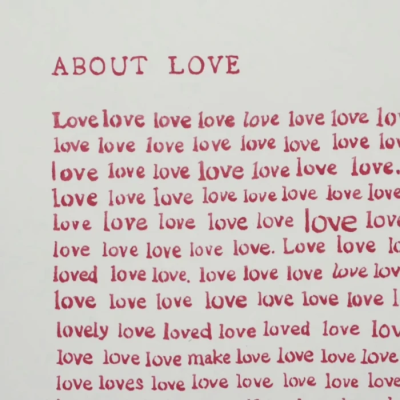 ABOUT LOVE
Love love love love love love love
love love love love love love love
love love love love love love love.
love love love love love love love love
love love love love love love love
love love love love love. Love love
loved love love, love love love love love
love love love love love love love
lovely love loved love loved love
love love love make love love love love
love loves love love love love love love